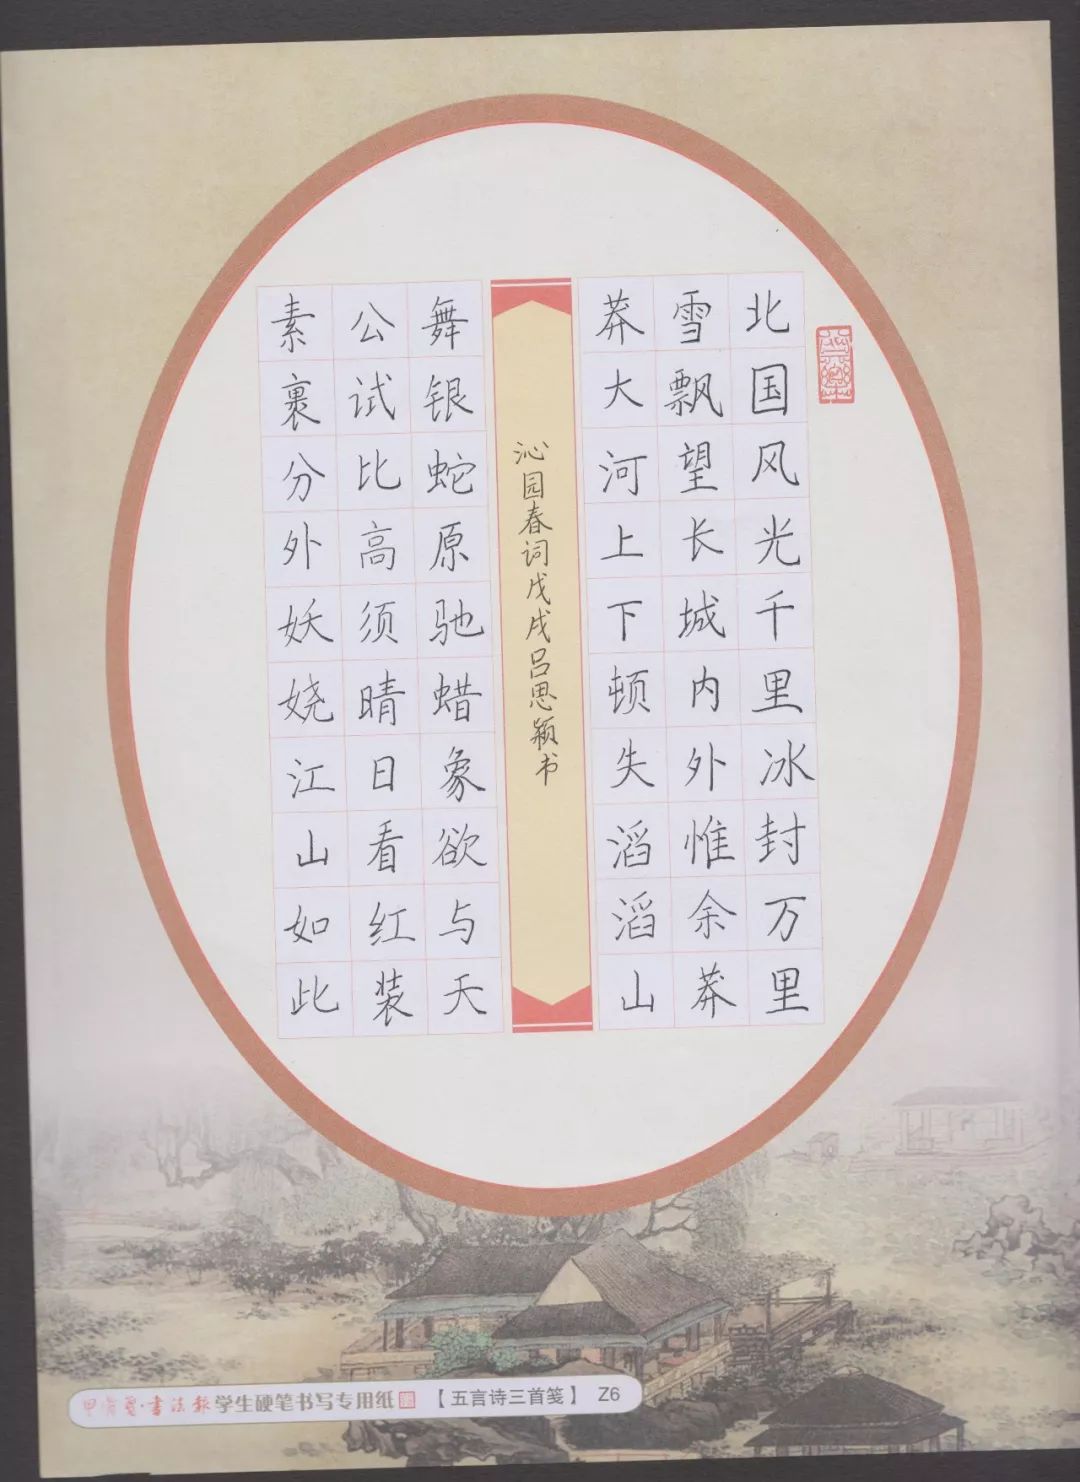 北国风光千里冰封万里
雪飘望长城内外惟余莽
莽大河上下顿失滔滔山
沁园春词戊戌吕思颖书
舞银蛇原驰蜡象欲与天
公试比高须晴日看红装
素裹分外妖娆江山如此
书法报·学生硬笔书写专用纸 【五言诗三首笺】 Z6